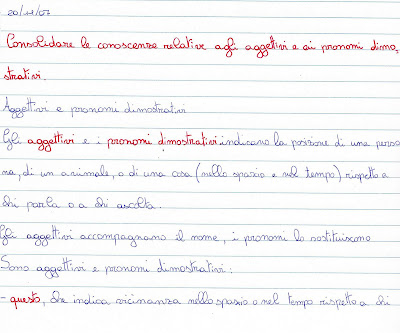 20/11/07
Consolidare le conoscenze relative agli aggettivi e ai pronomi dimo,
strativi.
Aggettivi e pronomi dimostrativi
Gli aggettivi e i pronomi dimostrativi indicano la posizione di una perso
na, di un animale, o di una cosa (nello spazio e nel tempo) rispetto a
chi parla o a chi ascolta.
Gli aggettivi accompagnano il nome, i pronomi lo sostituiscono
Sono aggettivi e pronomi dimostrativi:
- questo, che indica vicinanza nello spazio o nel tempo rispetto a chi